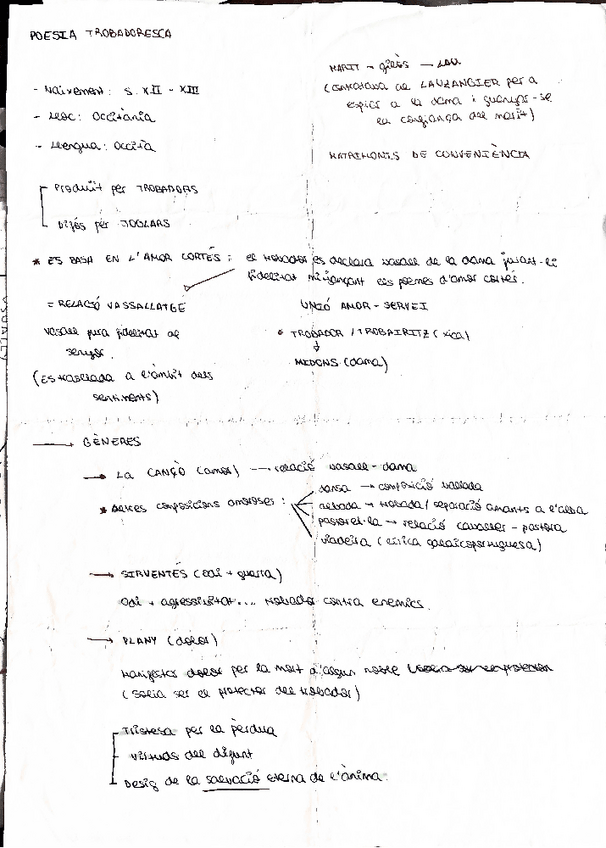 POESIA TROBADORESCA
- Naixement: s. XII - XIII
- Lloc: Occitània
- Llengua: Occità
Produït per TROBADORS
Difós per JOGLARS
MARIT → gilós — LAU
(contractava al LAUZANGIER per a
espiar a la dama i guanyar-se
la confiança del marit)
MATRIMONIS DE CONVENIÈNCIA
* ES BASA EN L'AMOR CORTÉS: el trobador es declara vasall de la dama jurant-li
fidelitat mitjançant els poemes d'amor cortés.
= RELACIÓ VASSALLATGE
vasall jura fidelitat al
senyor.
(Es trasllada a l'àmbit dels
sentiments)
UNIÓ AMOR - SERVEI
• TROBADOR / TROBAIRITZ (xica)
↓
MIDONS (dama)
→ GÈNERES
→ La CANÇÓ (amor) → relació vasall - dama
* Altres composicions amoroses:
dansa → composició ballada
albada → trobada / separació amants a l'alba
pastorel·la → relació cavaller - pastora
viadeira (lírica galaicoportuguesa)
→ SIRVENTÉS (odi + guerra)
Odi + agressivitat... trobador contra enemics.
→ PLANY (dolor)
Manifestar dolor per la mort d'algun noble
(solia ser el protector del trobador)
Tristesa per la pèrdua
virtuds del difunt
Desig de la salvació eterna de l'ànima.